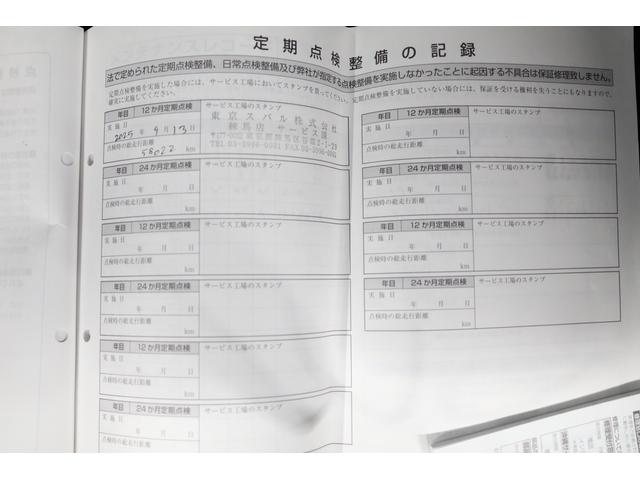 定期点検整備の記録
法で定められた定期点検整備、日常点検整備及び弊社が指定する点検整備を実施しなかったことに起因する不具合は保証修理致しません。
定期点検整備を実施した場合には、サービス工場においてスタンプを貰ってください。
定期点検整備を実施していない場合には、保証を受ける権利を失うこともありますので、
確実に実施してください。
年目 12か月定期点検 サービス工場のスタンプ
実施日
2025年 9月13日
点検時の総走行距離
58022 km
東京スバル株式会社
練馬店 サービス課
年目 24か月定期点検 サービス工場のスタンプ
実施日
年 月 日
点検時の総走行距離
km
年目 12か月定期点検 サービス工場のスタンプ
実施日
年 月 日
点検時の総走行距離
km
年目 24か月定期点検 サービス工場のスタンプ
実施日
年 月 日
点検時の総走行距離
km
年目 12か月定期点検 サービス工場のスタンプ
実施日
年 月 日
点検時の総走行距離
km
年目 24か月定期点検 サービス工場のスタンプ
実施日
年 月 日
点検時の総走行距離
km
年目 12か月定期点検 サービス工場のスタンプ
実施日
年 月 日
点検時の総走行距離
km
年目 24か月定期点検 サービス工場のスタンプ
実施日
年 月 日
点検時の総走行距離
km
年目 12か月定期点検 サービス工場のスタンプ
実施日
年 月 日
点検時の総走行距離
km
年目 24か月定期点検 サービス工場のスタンプ
実施日
年 月 日
点検時の総走行距離
km